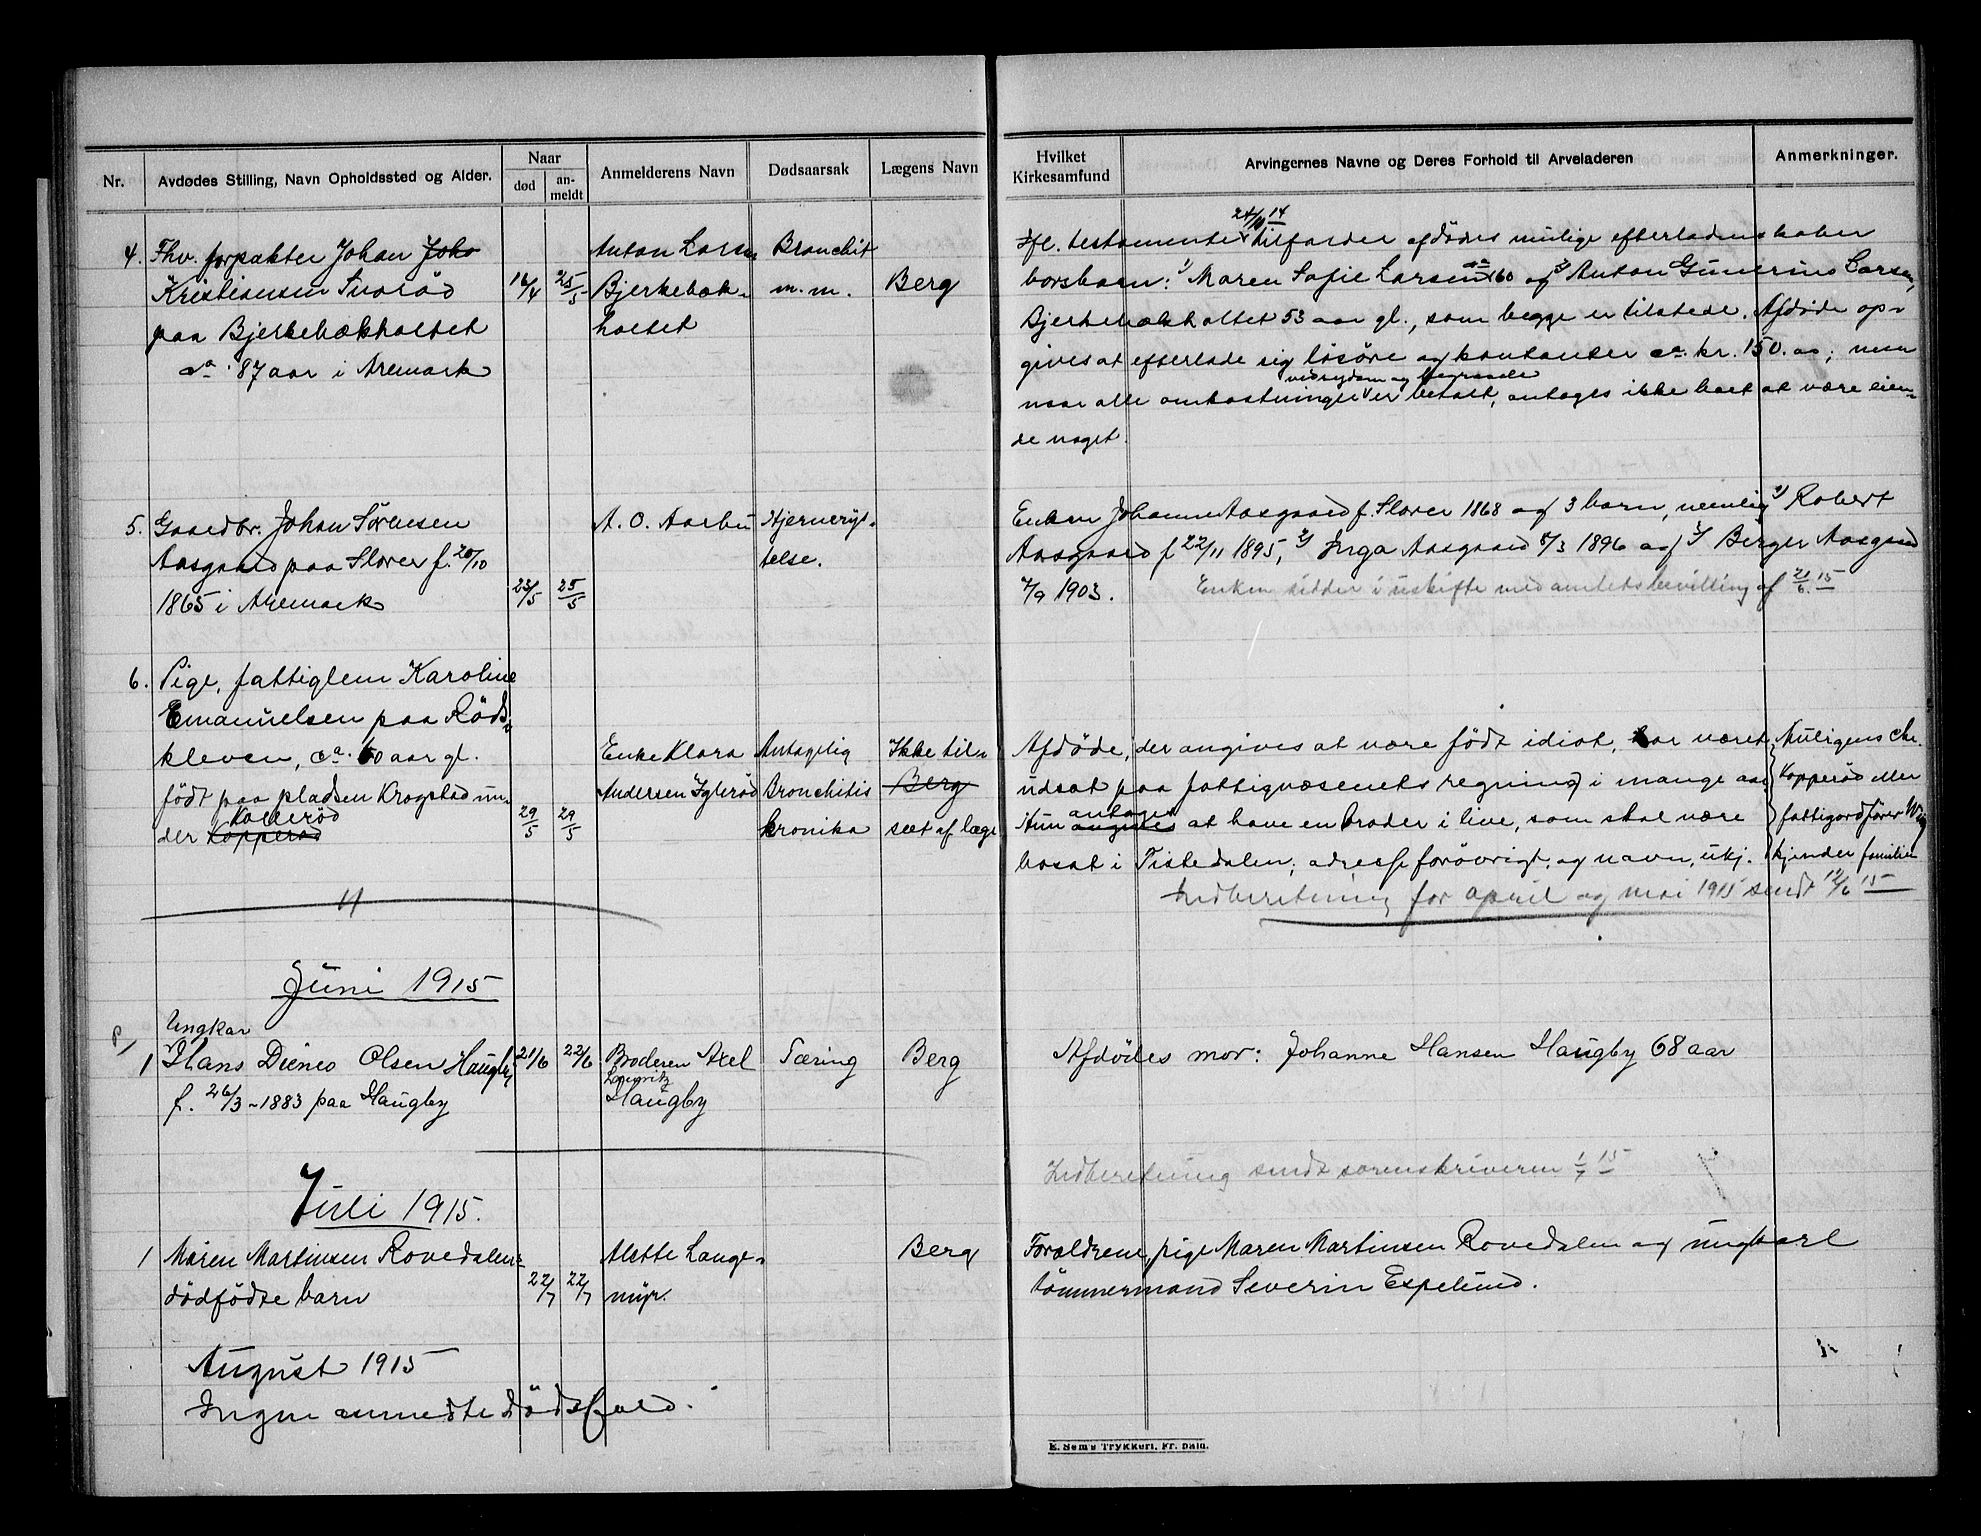 Nr.
Avdødes Stilling, Navn Opholdssted og Alder.
Naar
død
an-
meldt
Anmelderens Navn
Dødsaarsak
Lægens Navn
Hvilket
Kirkesamfund
Arvingernes Navne og Deres Forhold til Arveladeren
Anmerkninger.
4. Fhv. forpakter Johan Joho
Kristiansen
paa Bjerkebækholtet
ca. 87 aar i Aremark
16/4
25/5
Anton Larsen
Bjerkebæk-
holtet
Bronchit
m.m.
Berg
24/10 14
Ifl. testamente tilfalder afdødes mulige efterladenskaber
borsbarn: 1) Maren Sofie Larsen ca 60 og 2) Anton Gunerius Larsen,
Bjerkebækholtet 53 aar gl., som begge er tilstede. Afdøde op-
gives at efterlade sig løsøre og kontanter ca. kr. 150.00; men
vedsygdom og begravelse
naar alle omkostninger er betalt, antages ikke boet at være eien-
de noget.
5. Gaardbr. Johan Sørensen
Aasgaard paa Slorer f. 20/10
1865 i Aremark
23/5
25/5
A. O. Aarbu
Hjernerys-
telse.
Enken Johanne Aasgaard f. Slorer 1868 og 3 barn, nemlig 1) Robert
Aasgaard f 22/11 1895, 2) Inga Aasgaard 8/3 1896 og 3) Berger Aasgaard
7/9 1903.
Enken sidder i uskifte med amtets bevilling af 21/6 15
6. Pige, fattiglem Karoline
Emanuelsen paa Røds-
kleven, ca. 60 aar gl.
født paa pladsen Krogstad un-
Kollerød
der Kopperød
29/5
29/5
Enke Klara
Andersen Iglerød
Antagelig
Bronchitis
kronika
Ikke til-
Berg
seet af læge
Afdøde, der angives at være født idiot, har været
udsat paa fattigvæsenets regning i mange aar
antages
Hun angives at have en broder i live, som skal være
bosat i Tistedalen; adresse forøvrigt og navn, ukj.
Muligens Chr.
Kopperød eller
fattigordfører Wiig
kjender familien
Indberetning for april og mai 1915 sendt 12/6 15
Juni 1915
Ungkar
1 Hans Dines Olsen Haugby
f. 26/3-1883 paa Haugby
21/6
22/6
Broderen Axel
Lauritz
Haugby
Tæring
Berg
Afdødes mor: Johanne Hansen Haugby 68 aar
Indberetning sendt sorenskriveren 1/7 15
Juli 1915.
1 Maren Martinsen Rovedalen:
dødfødte barn
22/7
22/7
Alette Lange-
myr.
Berg
Forældrene, pige Maren Martinsen Rovedalen og ungkarl
tømmermand Severin Espelund.
August 1915
Ingen anmeldte dødsfald.
E. Sem's Trykkeri, Fr.hald.